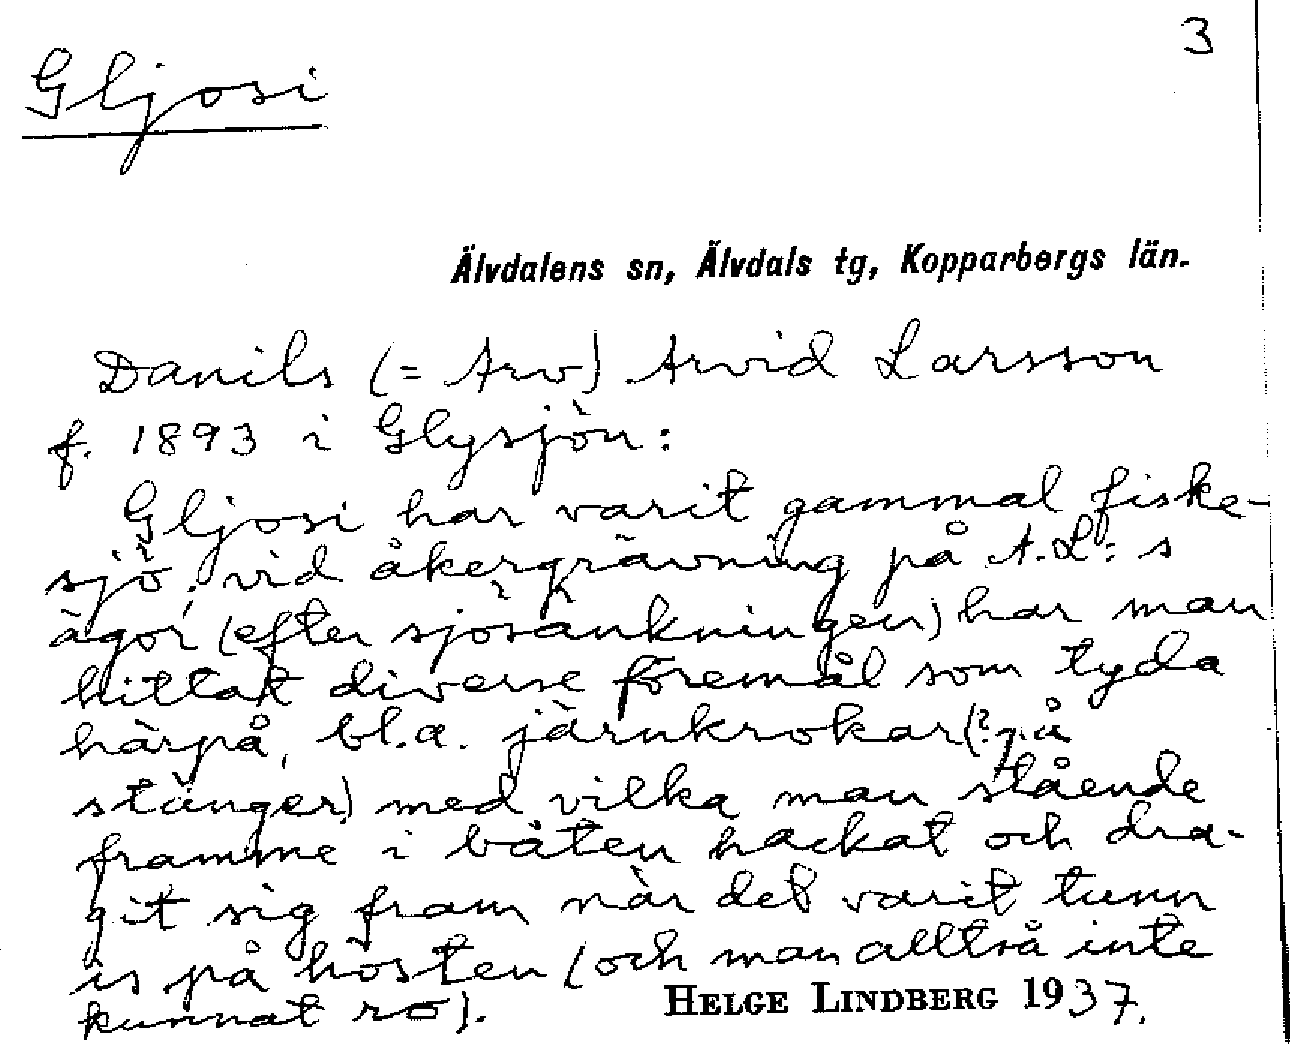 3
Gljosi
Älvdalens sn, Älvdals tg, Kopparbergs län.
Danils (= Arv) Arvid Larsson
f. 1893 i Glysjön:
Gljosi har varit gammal fiske-
sjö. vid åkergrävning på A.L:s
ägor (efter sjösänkningen) har man
hittat diverse föremål som tyda
härpå, bl.a. järnkrokar (? på
stänger) med vilka man stående
framme i båten hackat och dra-
git sig fram när det varit tunn
is på hösten (och man alltså inte
kunnat ro).
HELGE LINDBERG 1937.